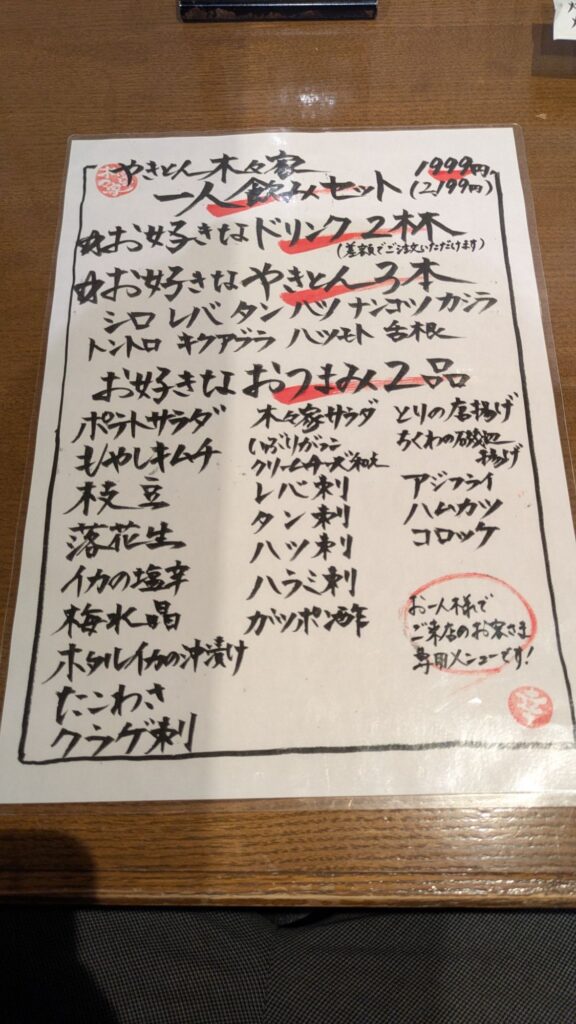 やきとん 木々家
一人飲みセット
1999円
(2,199円)
☆お好きなドリンク2杯
(差額でご注文いただけます)
☆お好きなやきとん3本
シロ レバ タン ハツ ナンコツ カシラ
トントロ キクアブラ ハツモト 舌根
お好きなおつまみ2品
ポテトサラダ
もやしキムチ
枝豆
落花生
イカの塩辛
梅水晶
ホタルイカの沖漬け
たこわさ
クラゲ刺
木々家サラダ
いぶりがっこ
クリームチーズ和え
レバ刺
タン刺
ハツ刺
ハラミ刺
ガツポン酢
とりの唐揚げ
ちくわの磯辺
揚げ
アジフライ
ハムカツ
コロッケ
お一人様で
ご来店のお客さま
専用メニューです!